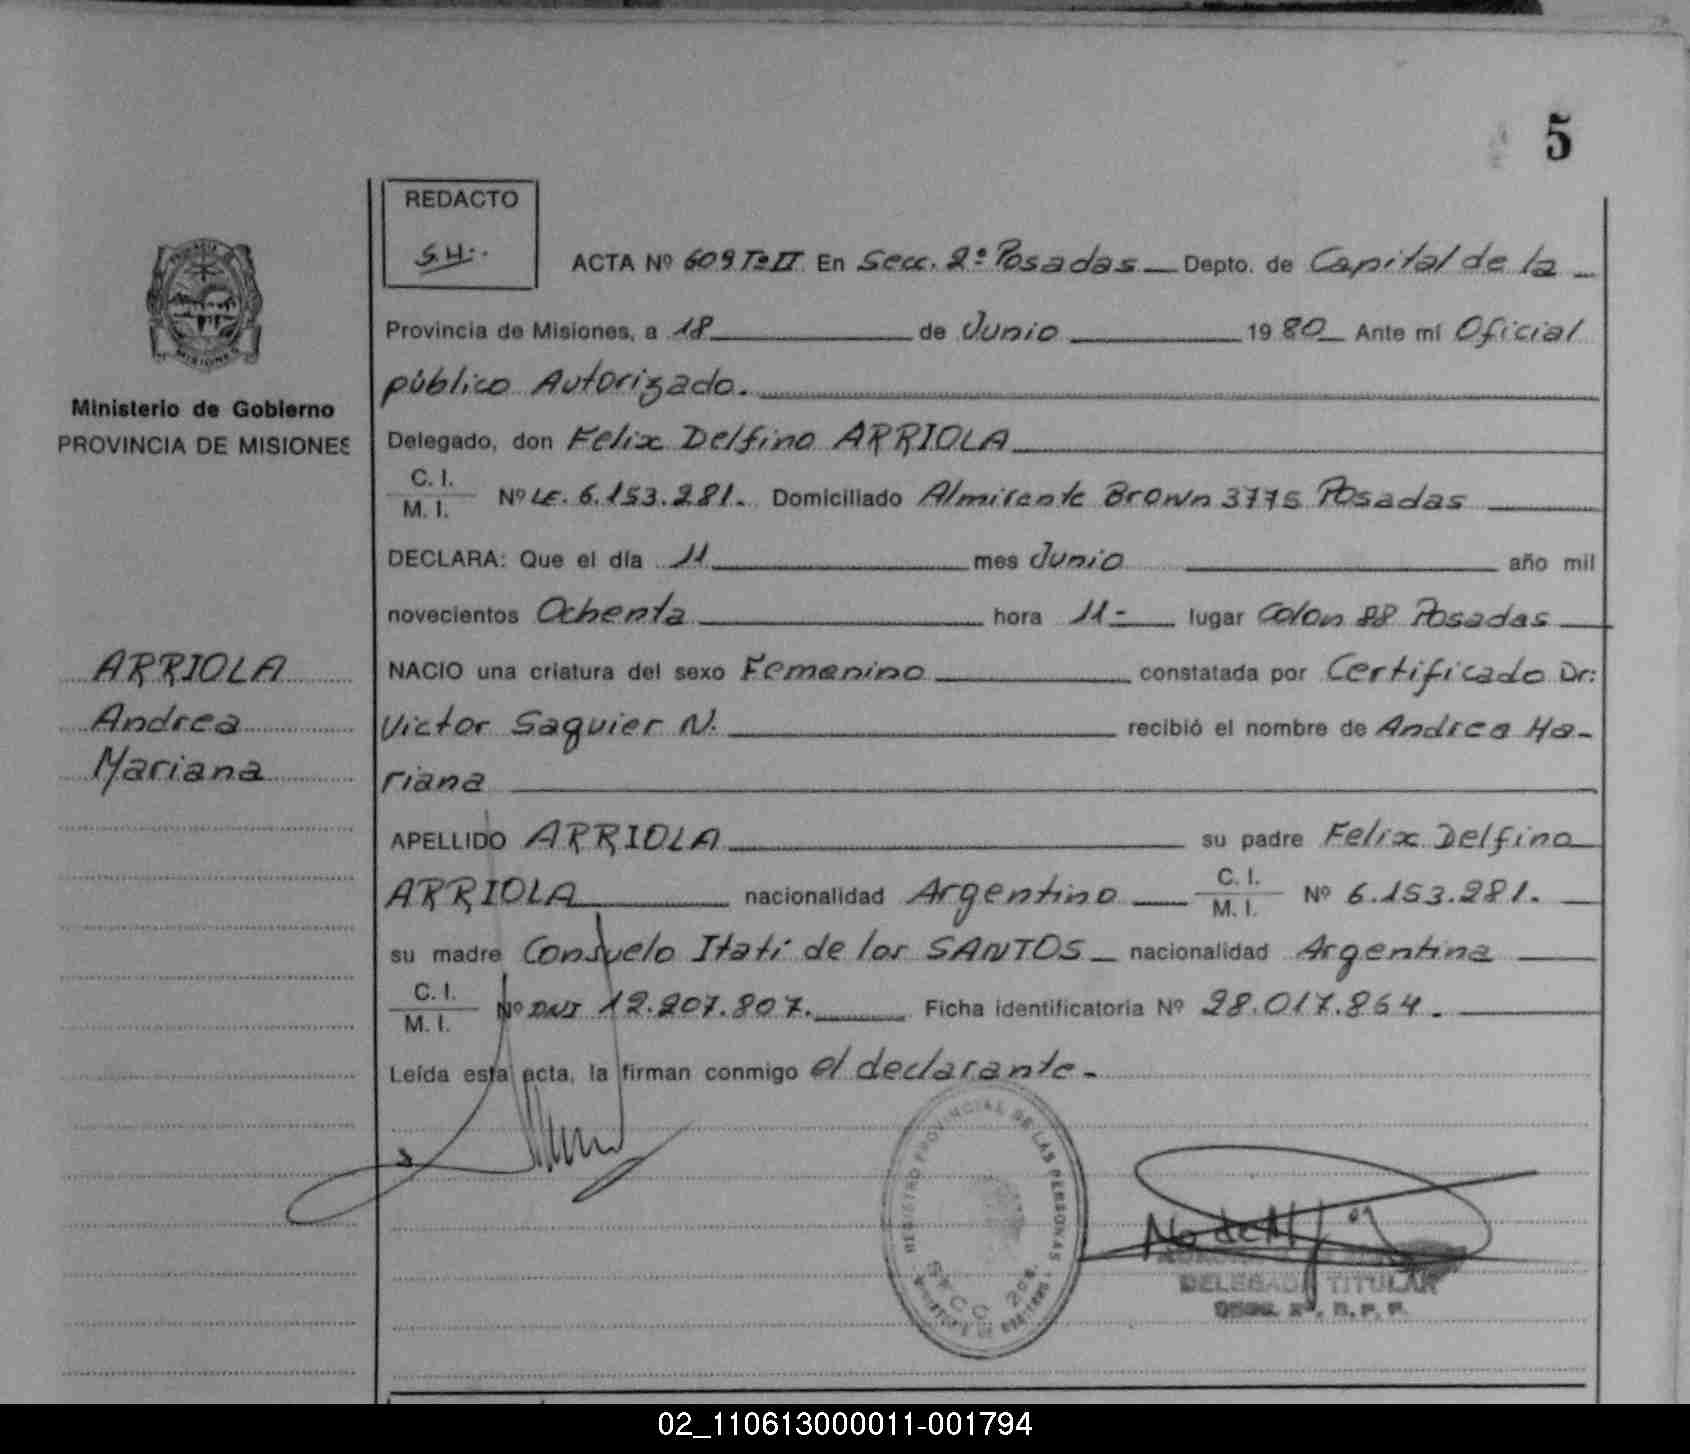 5
REDACTO
S.H.
ACTA Nº 609 Tº II En Secc. 2º Posadas Depto. de Capital de la
Provincia de Misiones, a 18 de Junio 1980 Ante mí Oficial
público Autorizado.
Ministerio de Gobierno
PROVINCIA DE MISIONES
Delegado, don Felix Delfino ARRIOLA
C. I.
M. I. Nº LE. 6.153.281. Domiciliado Almirante Brown 3775 Posadas
DECLARA: Que el día 11 mes Junio año mil
novecientos Ochenta hora 11- lugar Colon 88 Posadas
ARRIOLA
Andrea
Mariana
NACIO una criatura del sexo Femenino constatada por Certificado Dr:
Victor Saguier N. recibió el nombre de Andrea Ma-
riana
APELLIDO ARRIOLA su padre Felix Delfino
ARRIOLA nacionalidad Argentino C. I. M. I. Nº 6.153.281.
su madre Consuelo Itatí de los SANTOS nacionalidad Argentina
C. I.
M. I. Nº DNI 12.207.807. Ficha identificatoria Nº 28.017.864.
Leída esta acta, la firman conmigo el declarante.
REGISTRO PROVINCIAL DE LAS PERSONAS
SECC. 2da.
DELEGADA TITULAR
02_110613000011-001794